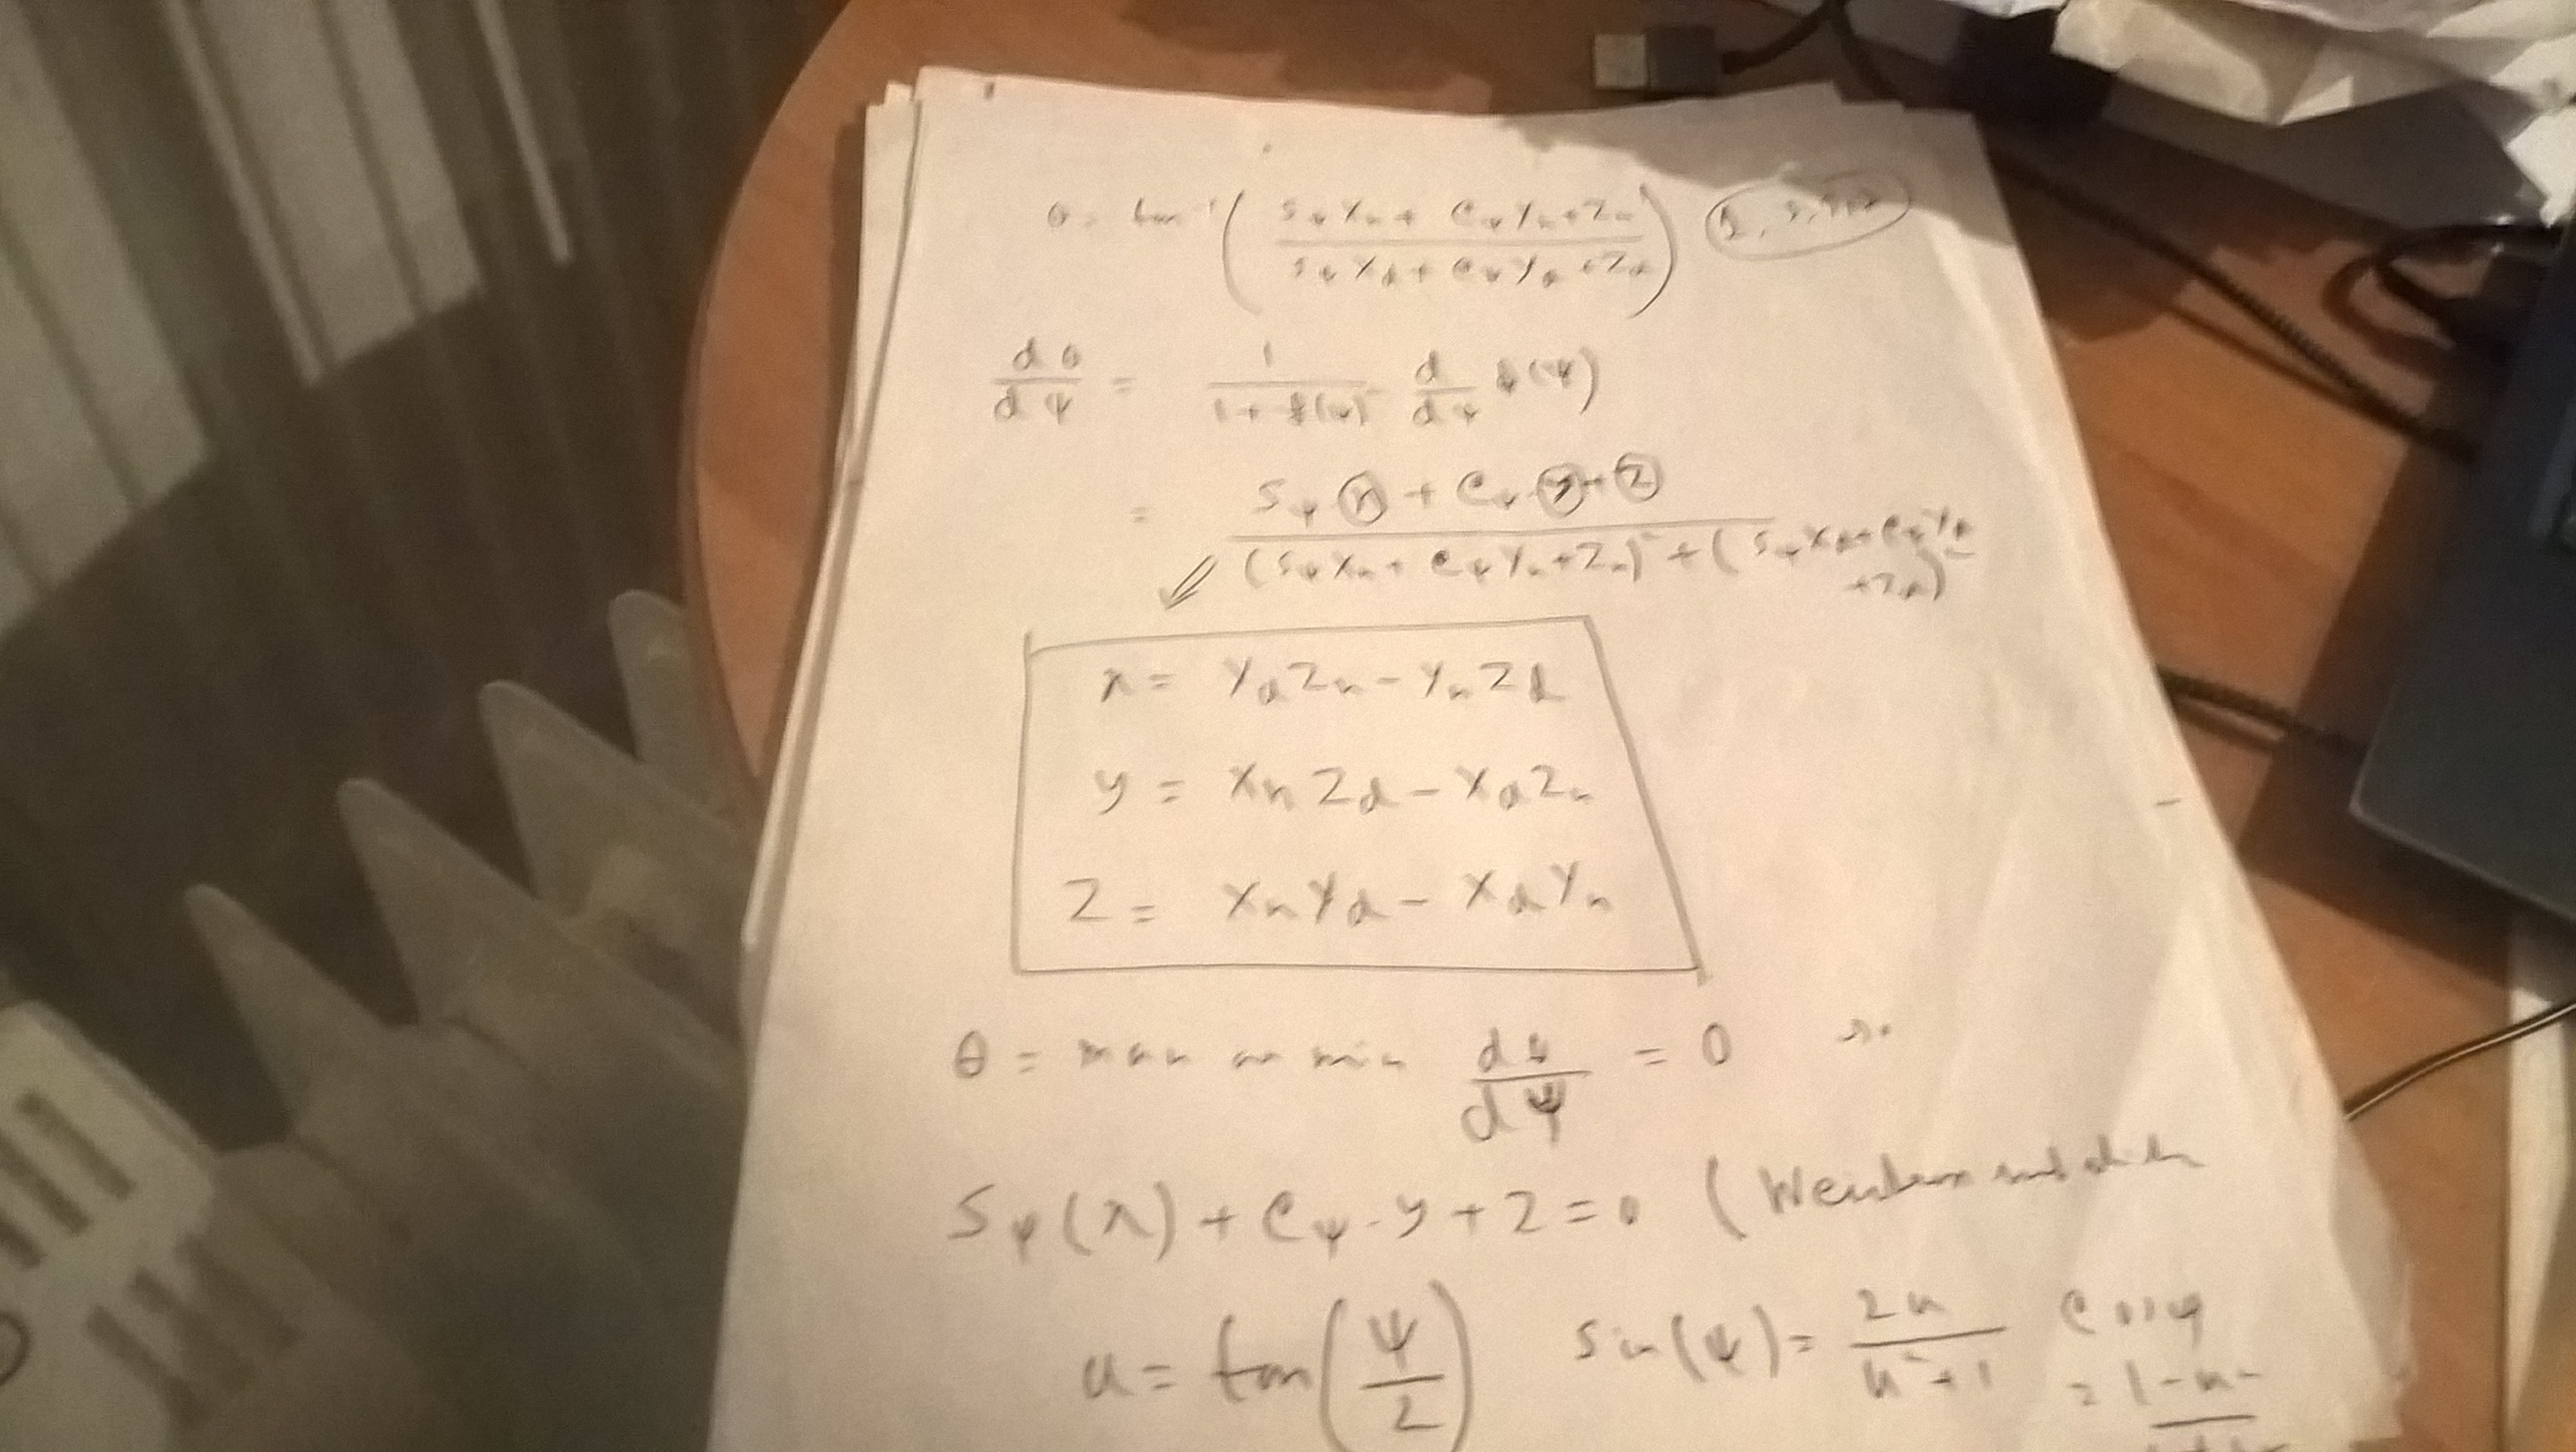 θ = tan⁻¹( (S_ψ X_n + C_ψ Y_n + Z_n) / (S_ψ X_d + C_ψ Y_d + Z_d) )
dθ/dψ = 1/(1 + f(ψ)²) d/dψ f(ψ)
= (S_ψ x + C_ψ y + z) / ((S_ψ X_n + C_ψ Y_n + Z_n)² + (S_ψ X_d + C_ψ Y_d + Z_d)²)
x = Y_d Z_n - Y_n Z_d
y = X_n Z_d - X_d Z_n
z = X_n Y_d - X_d Y_n
θ = max or min dθ/dψ = 0 so
S_ψ(x) + C_ψ·y + z = 0 (
u = tan(ψ/2) sin(ψ) = 2u/(u²+1) cosψ
= 1-u²